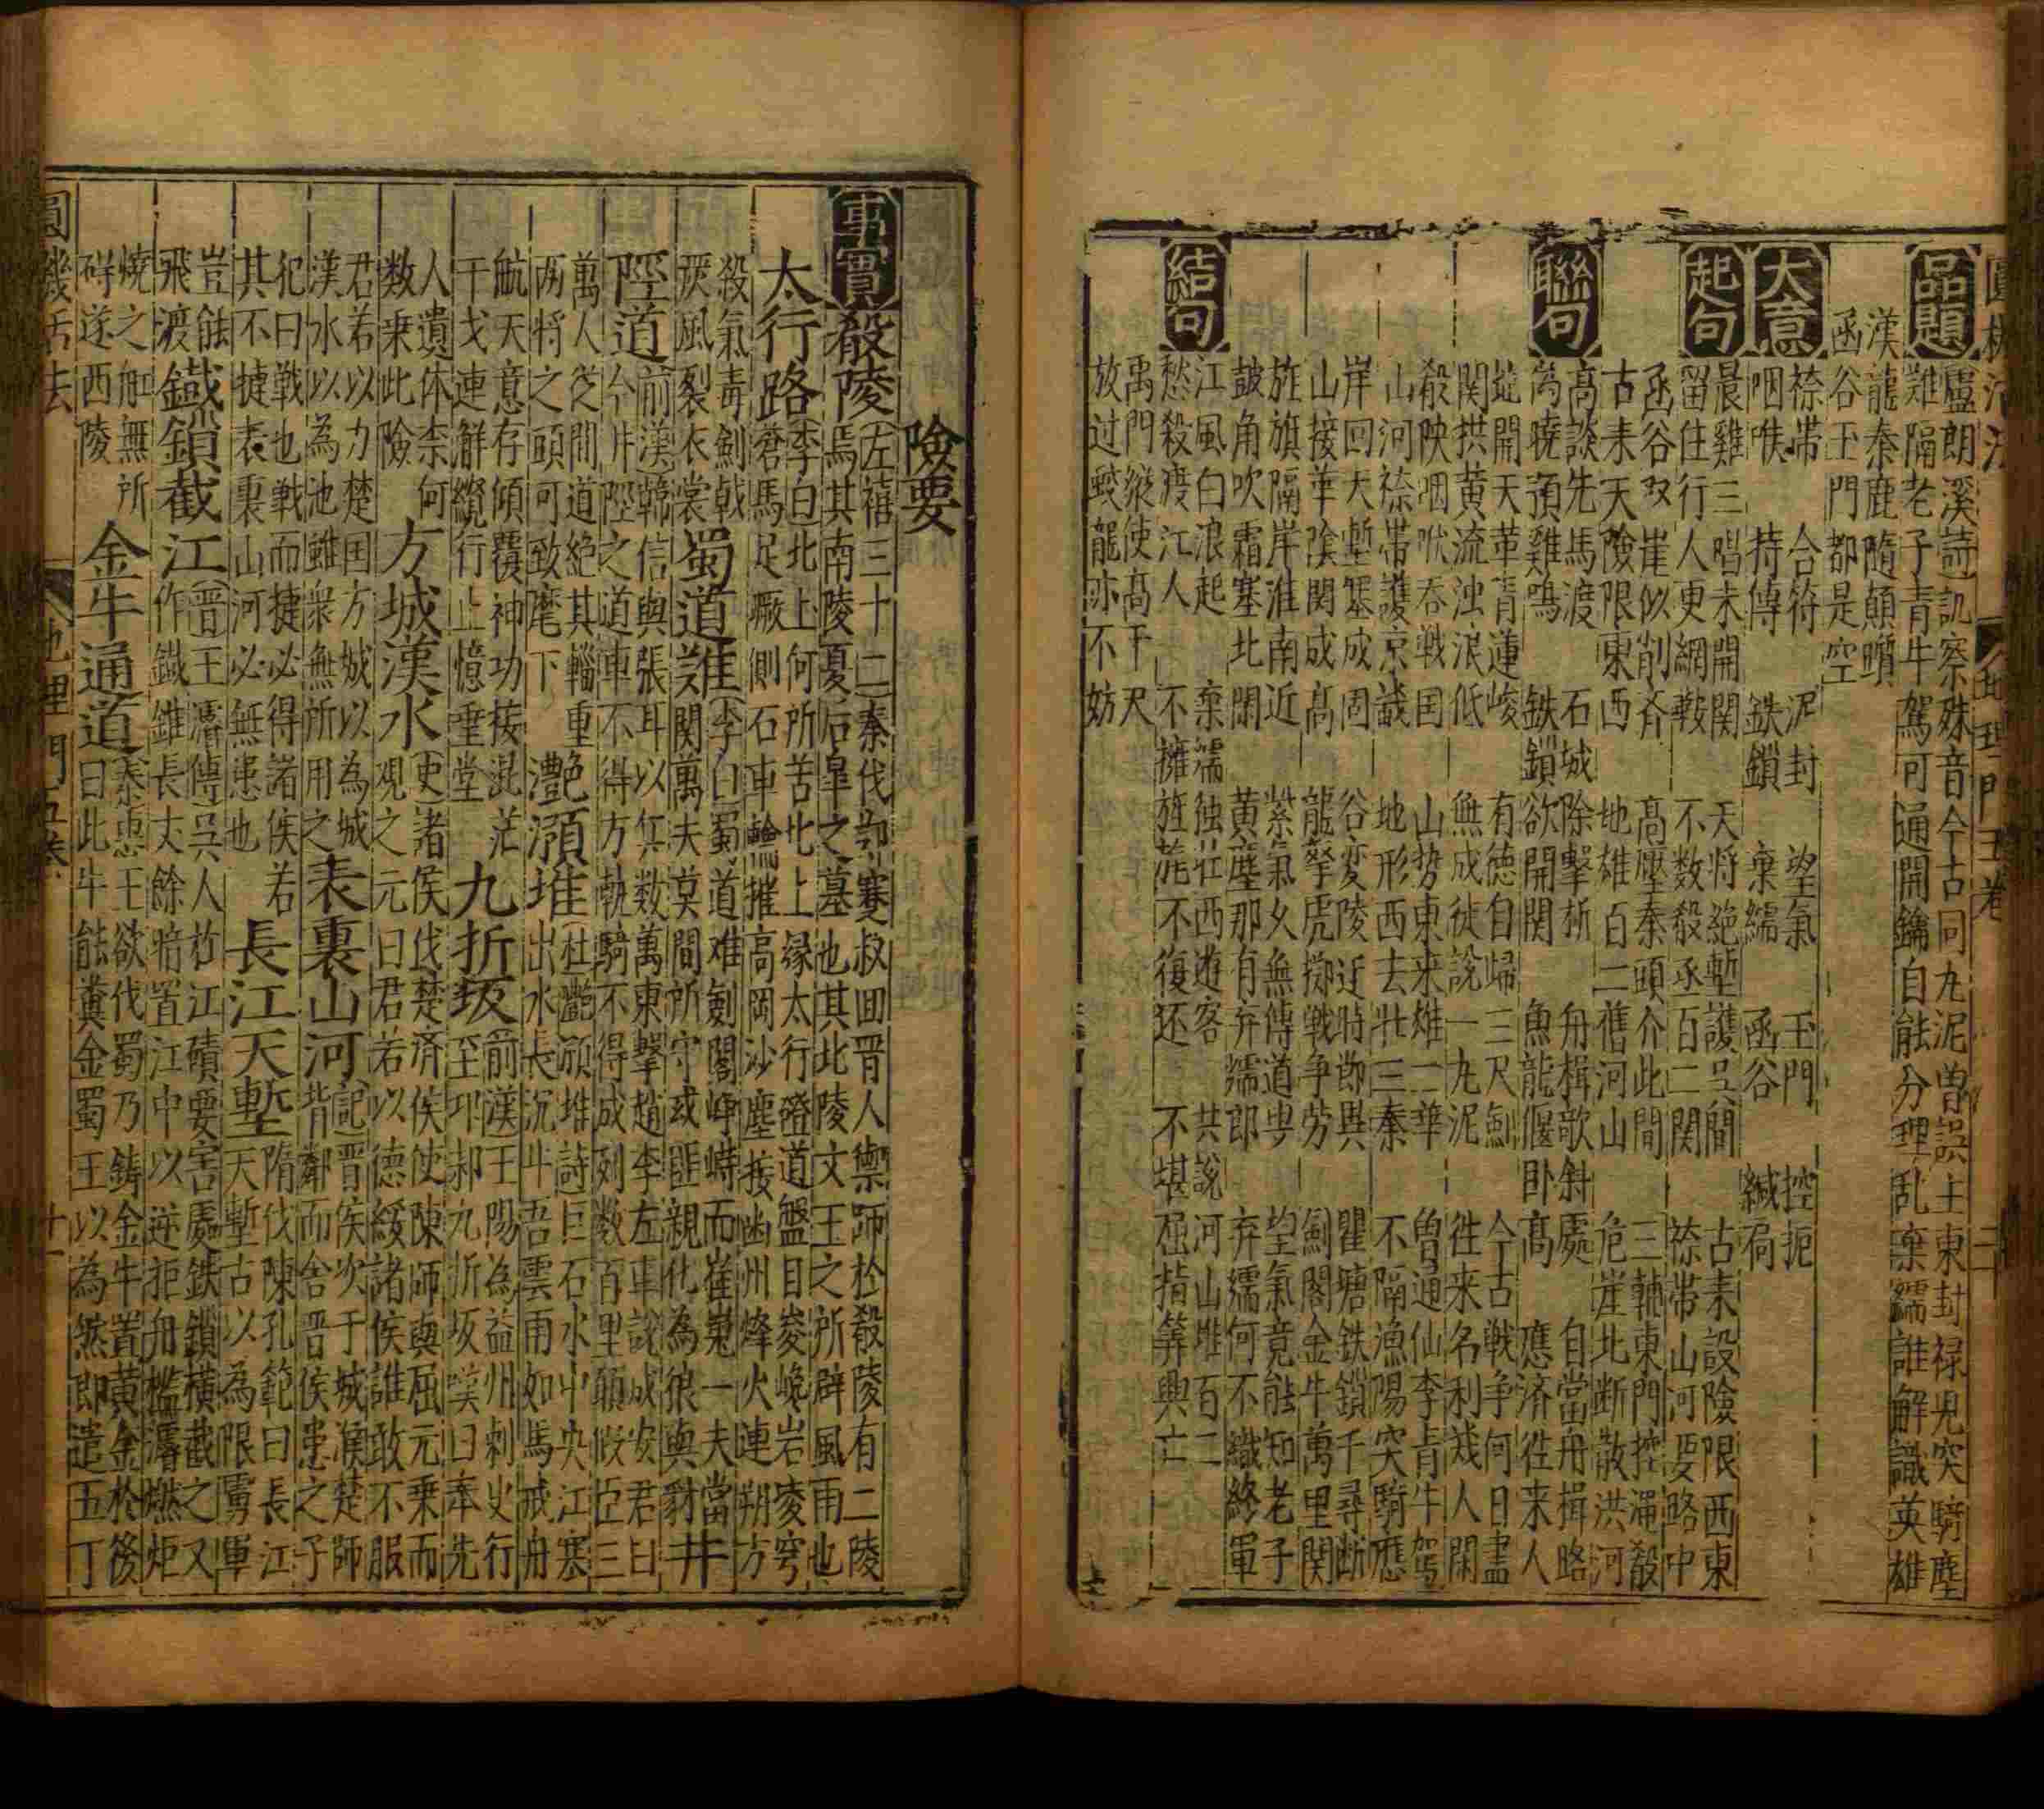 圓機活法 地理門五卷 二
品題
盧朗溪詩 訊察殊音今古同丸泥曽誤土東封禄児突騎塵
難隔老子青牛駕可通開鑰自能分理乱棄繻誰解識英雄
漢龍秦鹿隨顛𮬑
函谷玉門都是空
大意
襟带 合符 泥封 望氣 玉門 控扼
咽喉 持傳 鉄鎖 棄繻 函谷 緘扃
起句
晨雞三唱未開関 天将絶塹護 古来設險限西東
留住行人更網鞍 不数殺函百二関 襟帯山河要略中
函谷双崖似削斉 高壓秦頭介此間 三輔東門控澠殺
古来天險限東西 地雄百二舊河山 危崖北断散洪河
聯句
高談先馬渡 石城除擊柝 舟楫歌斜處 自當舟揖略
偽曉預雞鳴 鉄鎖欲開関 魚龍偃卧高 應済徃来人
遶開天華青蓮峻 有徳自歸三尺劍 今古戦争何日盡
関拱黄流浊浪低 無成徒說一丸泥 徃来名利幾人閑
殺陜咽吭吞戦国 山势東来雄二華 曽通仙李青牛駕
山河襟带護京畿 地形西去壮三秦 不隔漁陽突騎應
岸回大塹塞成固 谷変陵迁時莭異 瞿塘鉄鎖千尋断
山接華陰関成高 龍拏虎擲戦争労 劍閣金牛萬里関
旌旗隔岸淮南近 紫氣久無傳道㕛 望氣竟能知老子
皷角吹霜塞北閑 黄塵那有弃繻郎 弃繻何不識終軍
結句
江風白浪起 棄繻蚀壮西遊客 共說河山堆百二
愁殺渡江人 不擁旌旄不復还 不堪屈指筭興亡
禹門縱使高千尺
放过蛟龍亦不妨
險要
事實
殽陵 左禧三十二 秦伐鄭蹇叔囬晋人禦師於殽陵有二陵
焉其南陵夏后臯之墓也其北陵文王之所辟風雨也
太行路 李白 北上何所苦北上縁太行磴道盤且峻巉岩凌穹
蒼馬足蹶側石車輪摧高岡沙塵接幽州烽火連朔方
殺氣毒劍戟
厳風裂衣裳 蜀道難 李白 蜀道难劍閣峥嶸而崔嵬一夫當
関萬夫莫間所守或匪親化為狼與豺 井
陘道 前漢 韓信與張耳以兵数萬東撃趙李左車說成安君曰
今井陘之道車不得方軌騎不得成列数百里願假臣三
萬人從間道絶其輜重
兩将之頭可致麾下 灔澦堆 杜灔澦堆詩 巨石水中央江寒
出水長沉牛荅雲雨如馬戒舟
航天意存傾覆神功接混茫
干戈連觧纜行止憶垂堂 九折坂 前漢 王陽為益州刺史行
至邛郲九折坂嘆曰奉先
人遺体柰何
数乗此險 方城漢水 史 諸侯伐楚済侯使陳師與屈元乗而
观之元曰君若以德綏諸侯誰敢不服
君若以力楚国方城以為城
漢水以為池雖衆無所用之 表裏山河 記 晋侯次于城濮楚師
背鄰而舍晋侯患之子
犯曰戦也戦而捷必得諸侯若
其不捷表裏山河必無患也 長江天塹 隋伐陳孔範曰長江
天塹古以為限虜軍
豈能
飛渡 鐵鎖截江 晋王濬傳 吴人於江磧要害處鉄鎖横截之又
作鐵錐長丈餘暗置江中以逆拒舟艦濬燃炬
燒之舡無所
碍遂西陵 金牛通道 秦惠王欲伐蜀乃鋳金牛置黄金於後
曰此牛能糞金蜀王以為然即遣五丁
圓機活法 地理門五卷 十一